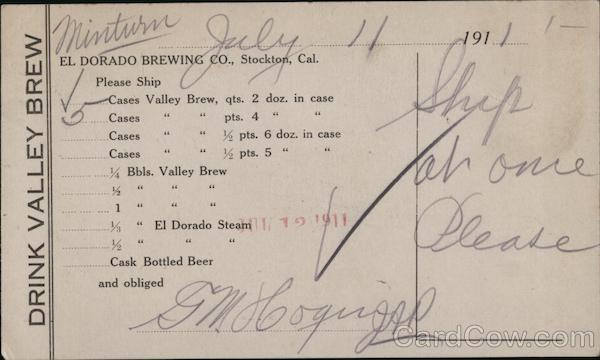 Minturn July 11 1911
EL DORADO BREWING CO., Stockton, Cal.
Please Ship
5 Cases Valley Brew, qts. 2 doz. in case
Cases " " pts. 4 " "
Cases " " ½ pts. 6 doz. in case
Cases " " ½ pts. 5 " "
¼ Bbls. Valley Brew
½ " " "
1 " " "
⅓ " El Dorado Steam
½ " " "
Cask Bottled Beer
and obliged
Ship
at once
Please
JUL 12 1911
DRINK VALLEY BREW
CardCow.com